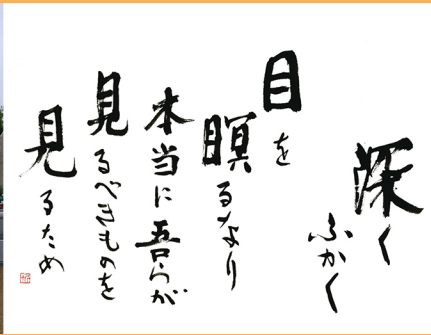 深く
ふかく
目を
瞑るなり
本当に吾らが
見るべきものを
見るため